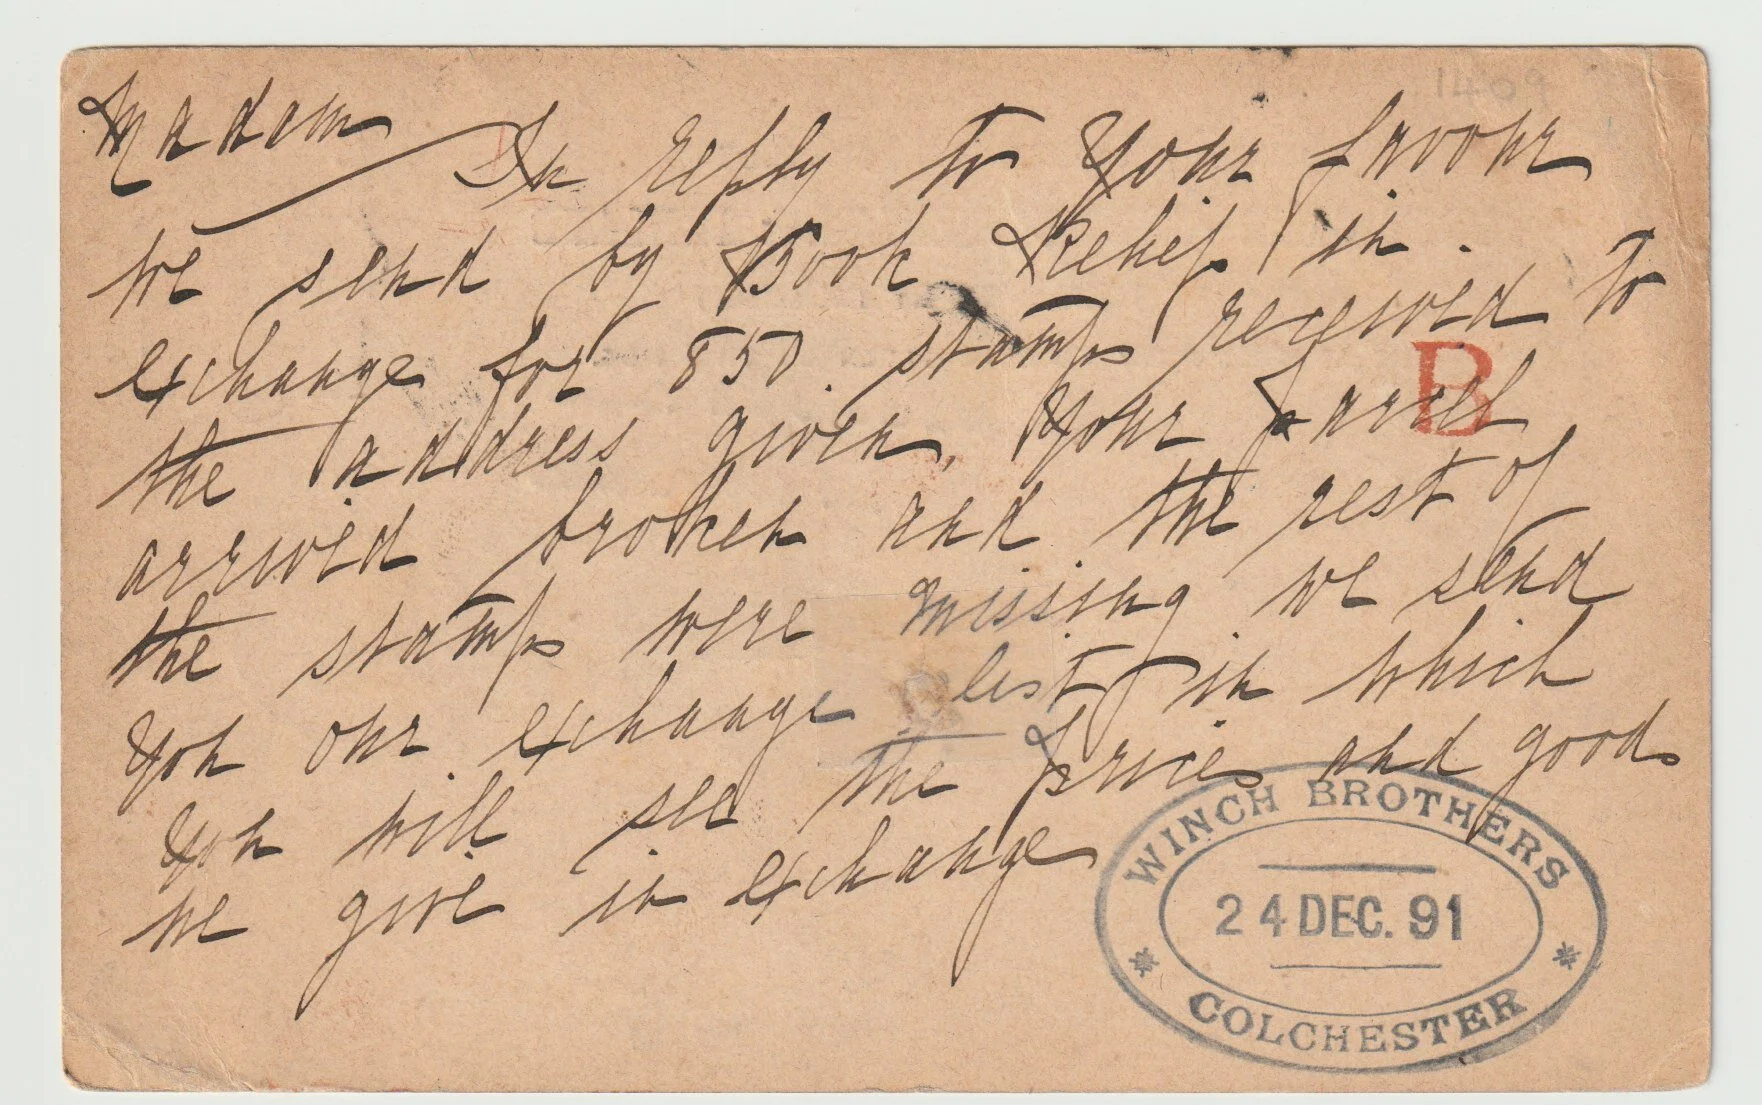 1409
Madam
In reply to your favour
we send by Book Relief in
exchange for 850. stamps received to
the address given, your parcel
B
arrived broken and the rest of
the stamps were missing we send
you our exchange list in which
you will see the prices and goods
we give in exchange
WINCH BROTHERS
24 DEC. 91
* COLCHESTER *